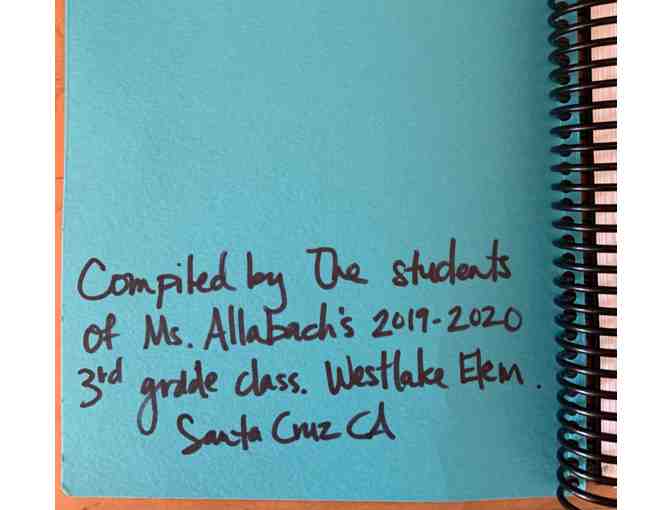 Compiled by The students
of Ms. Allabach's 2019-2020
3rd grade class. Westlake Elem.
Santa Cruz CA